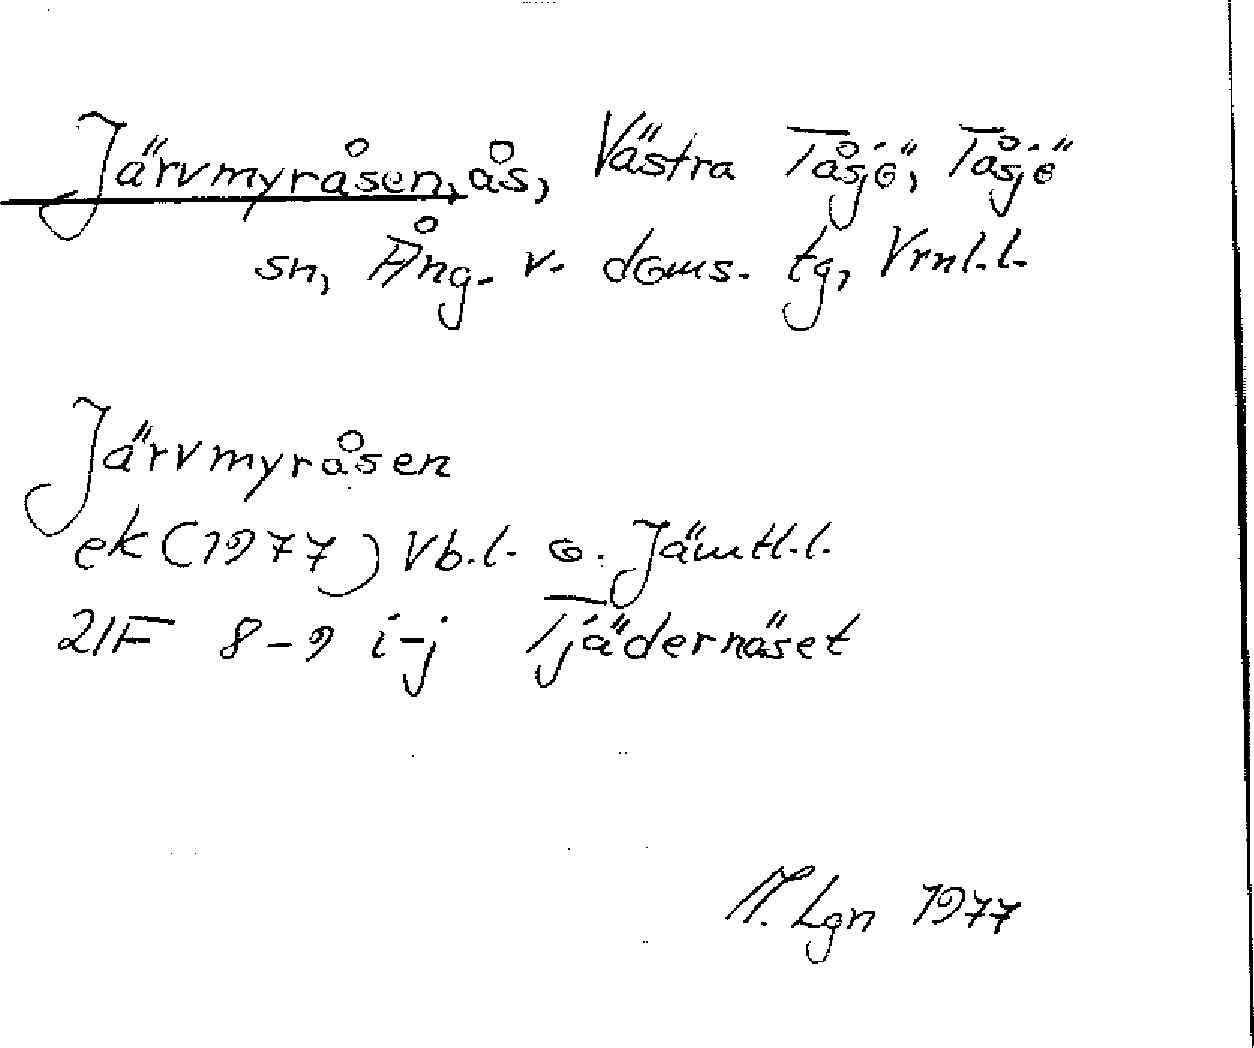 Järvmyråsen, ås, Västra Tåsjö, Tåsjö
sn, Ång. v. doms. tg, Vrnl.l.
Järvmyråsen
ek (1977) Vb.l. o. Jämtl.l.
21F 8-9 i-j Tjädernäset
Lgn 1977